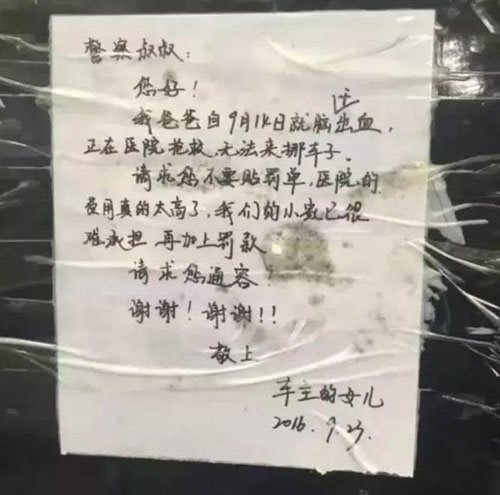 警察叔叔：
您好！
我爸爸自9月14日就脑出血，
正在医院抢救，无法来挪车子。
请求您不要贴罚单，医院的
费用真的太高了，我们的小家已很
难承担 再加上罚款
请求您通容！
谢谢！谢谢!!
敬上
车主的女儿
2016.9.23.